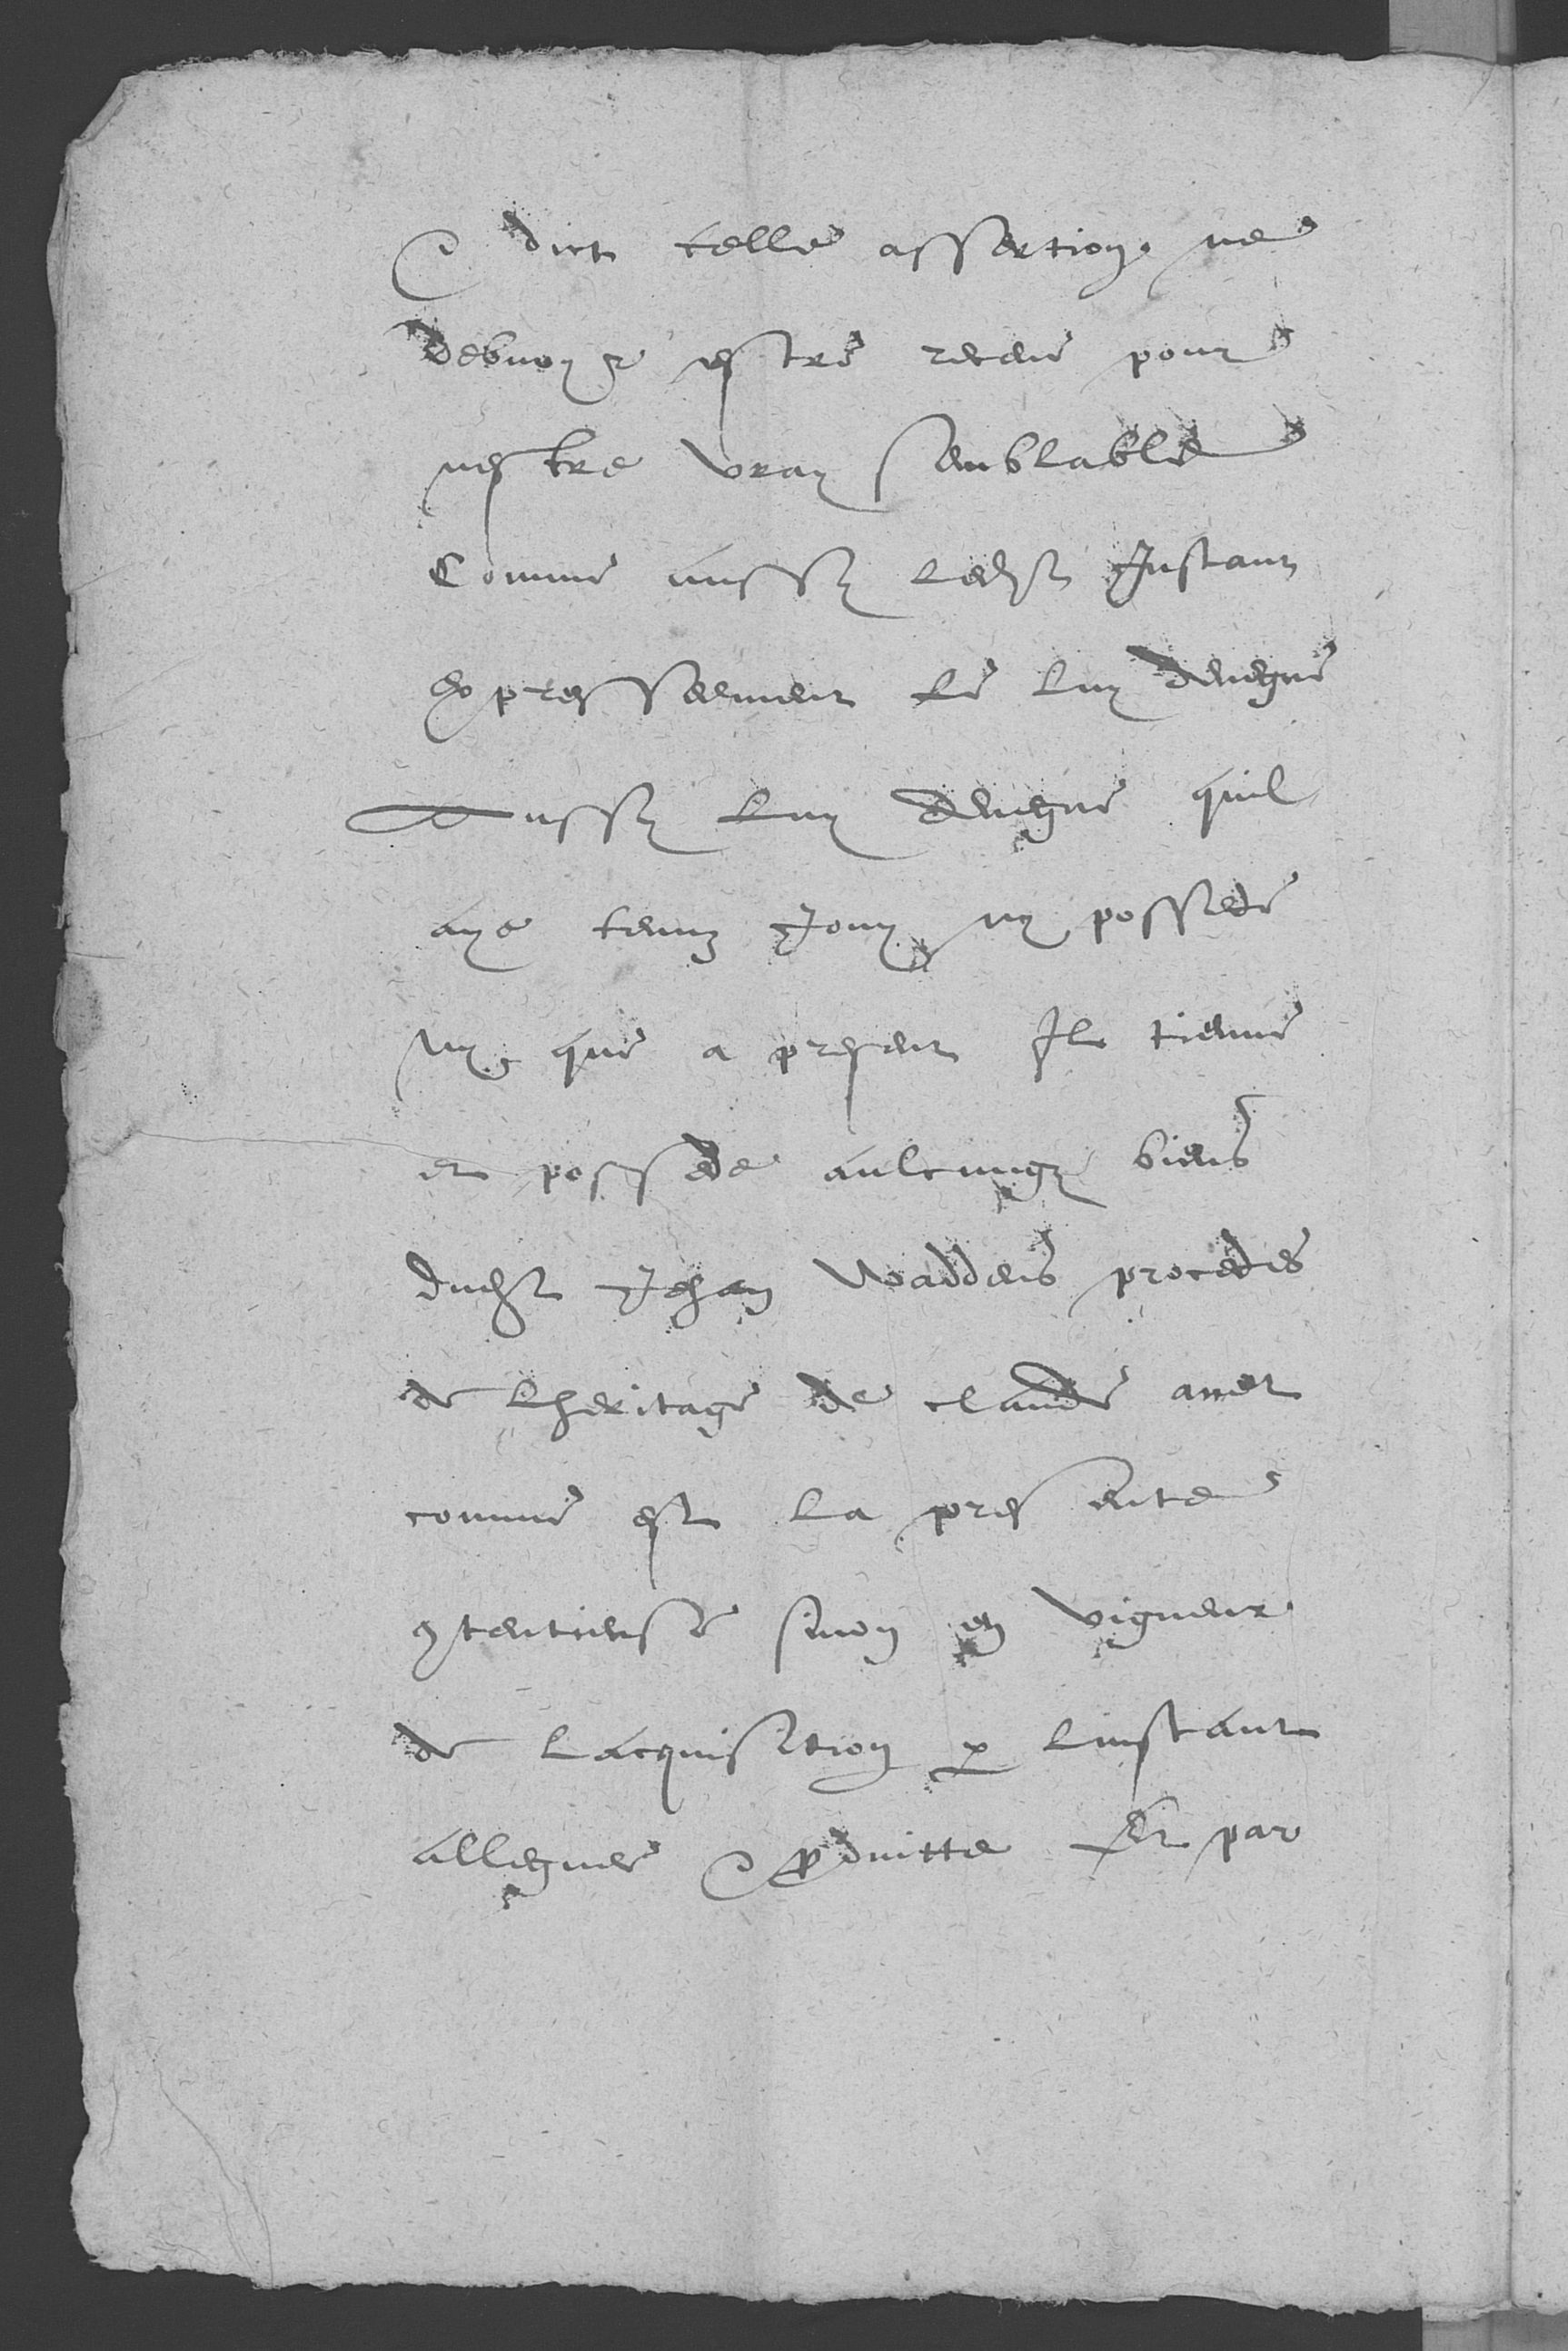 Et dict telle assertion ne
debvoyr estre receue pour
nestre vray semblable
Comme aussy ledit Instant
expressement le luy denegue
Aussy luy denegue quil
aye tenuz Jouy ny possede
ny que a present Il tienne
et possede aulcungz biens
dudit Jehan Waddens procedes
de lheritage de claude anet
comme est la presente
9tentieuse sinon en vigueur
de lacquisition p linstant
alleguee et produitte Et par